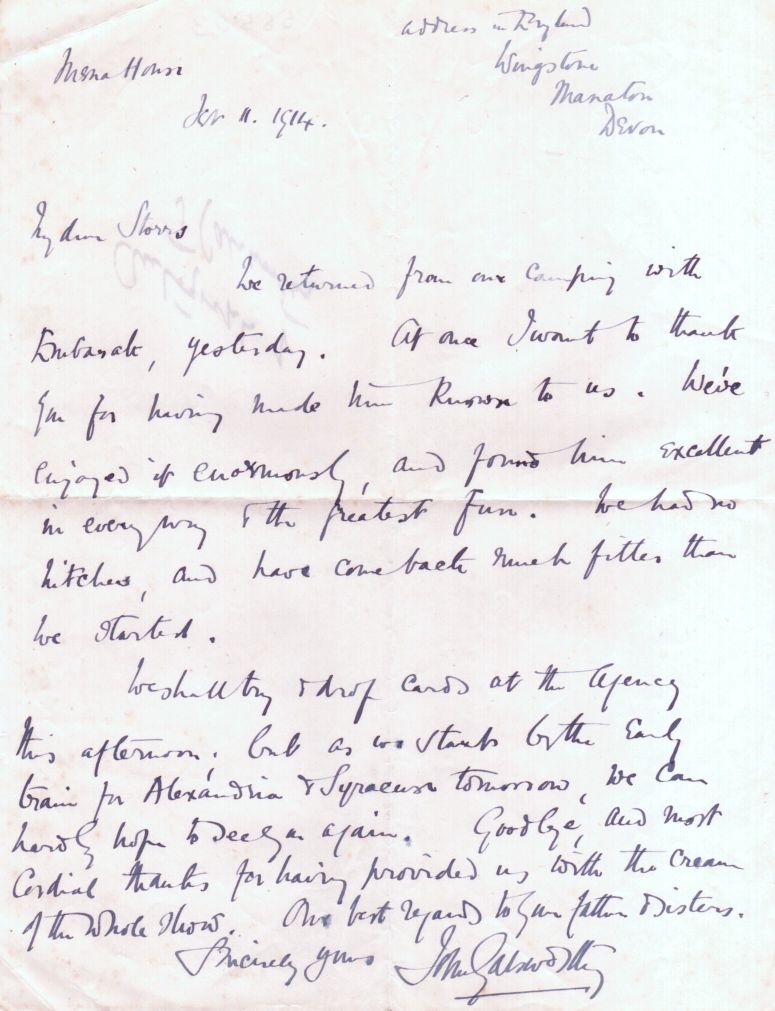 address in England
Wingstone
Manaton
Devon
Mena House
11. 1914.
My dear Storrs
We returned from our camping with
Embarak, yesterday. At once I want to thank
you for having made him known to us. We've
enjoyed it enormously, and found him excellent
in every way & the greatest fun. We had no
hitches, and have come back much fitter than
we started.
We shall try & drop cards at the Agency
this afternoon; but as we start by the Early
train for Alexandria & Syracuse tomorrow, we can
hardly hope to see you again. Goodbye, and most
Cordial thanks for having provided us with the cream
of the whole show. Our best regards to your father & sisters.
Sincerely yours John Galsworthy